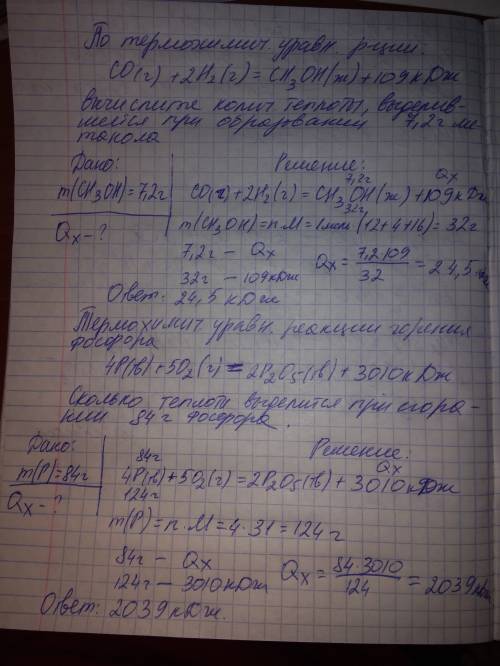 По термохимич. уравн. р-ции:
CO(г) + 2H₂(г) = CH₃OH(ж) + 109 кДж
вычислите колич. теплоты, выделив-
шейся при образовании 7,2г ме-
танола
Дано: Решение:
7,2г Qx
m(CH₃OH)=7,2г CO(г)+2H₂(г)=CH₃OH(ж)+109кДж
32г
Qx - ? m(CH₃OH)=n·M=1моль·(12+4+16)=32г
7,2г - Qx Qx = 7,2·109/32 = 24,5 кДж
32г - 109кДж
Ответ: 24,5 кДж
Термохимич. уравн. реакции горения
фосфора
4P(тв)+5O₂(г) = 2P₂O₅(тв) + 3010 кДж
Сколько теплоты выделится при сгора-
нии 84г фосфора.
Дано: Решение:
84г Qx
m(P)=84г 4P(тв)+5O₂(г)=2P₂O₅(тв)+3010 кДж
Qx - ? 124г
m(P)=n·M=4·31=124г
84г - Qx Qx = 84·3010/124 = 2039 кДж
124г - 3010кДж
Ответ: 2039 кДж.